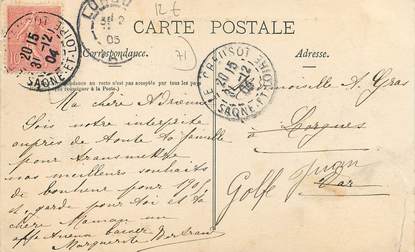 12€
71
CARTE POSTALE
Correspondance.
Adresse.
au recto n'est pas accepté par tous les pays
(se renseigner à la Poste).
LE CREUSOT
20 15
31-12
04
SAONE-ET-LOIRE
LE CREUSOT
20 15
31-12
04
SAONE-ET-LOIRE
2
05
Mademoiselle A. Gras
à
Lorgues
Var
Golfe Juan
Ma chère Adrienne
Sois notre interprète
auprès de toute ta famille
pour transmettre
nos meilleurs souhaits
de bonheur pour 1905
et garde pour toi et ta
chère Maman un
affectueux baiser
Marguerite Bertrand